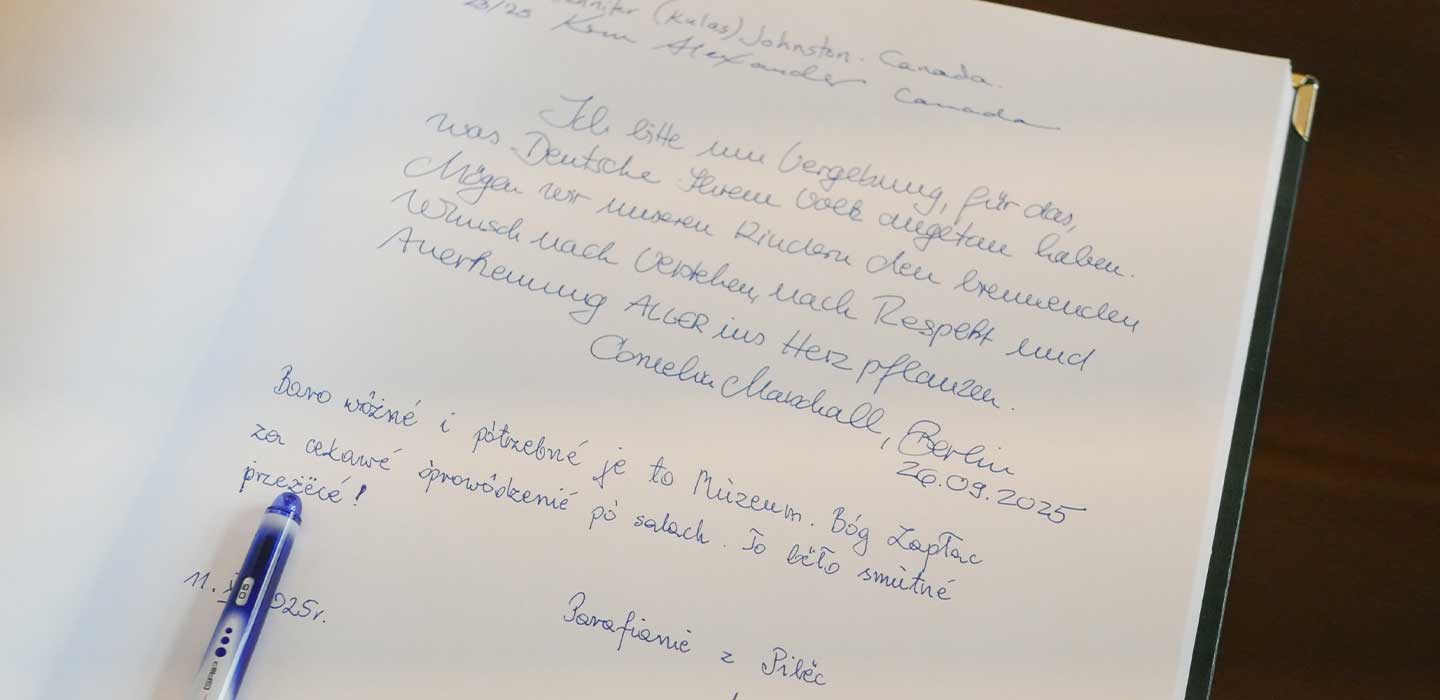 (Kulas) Johnston. Canada.
23/25 Kim Alexander Canada
Ich bitte um Vergebung, für das,
was Deutsche Ihrem Volk angetan haben.
Mögen wir unseren Kindern den brennenden
Wunsch nach Verstehen, nach Respekt und
Anerkennung ALLER ins Herz pflanzen.
Cornelia Marschall, Berlin
26.09.2025
Baro wôżné i pòtrzebné je to Mùzeum. Bóg Zapłac
za cekawé òprowôdzenié pò salach. To bëło smùtné
przeżëcé!
11. 2025r.
Parafianié z Pilëc